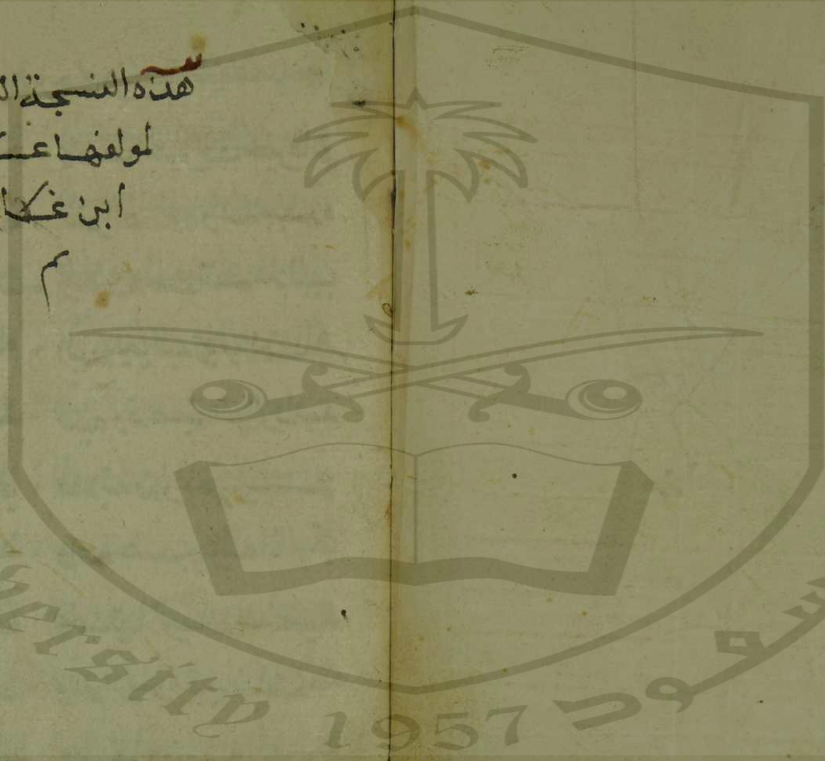 هذه النسخة ال
لمولفها عـ
ابن غـكا
م
versity 1957 سعود